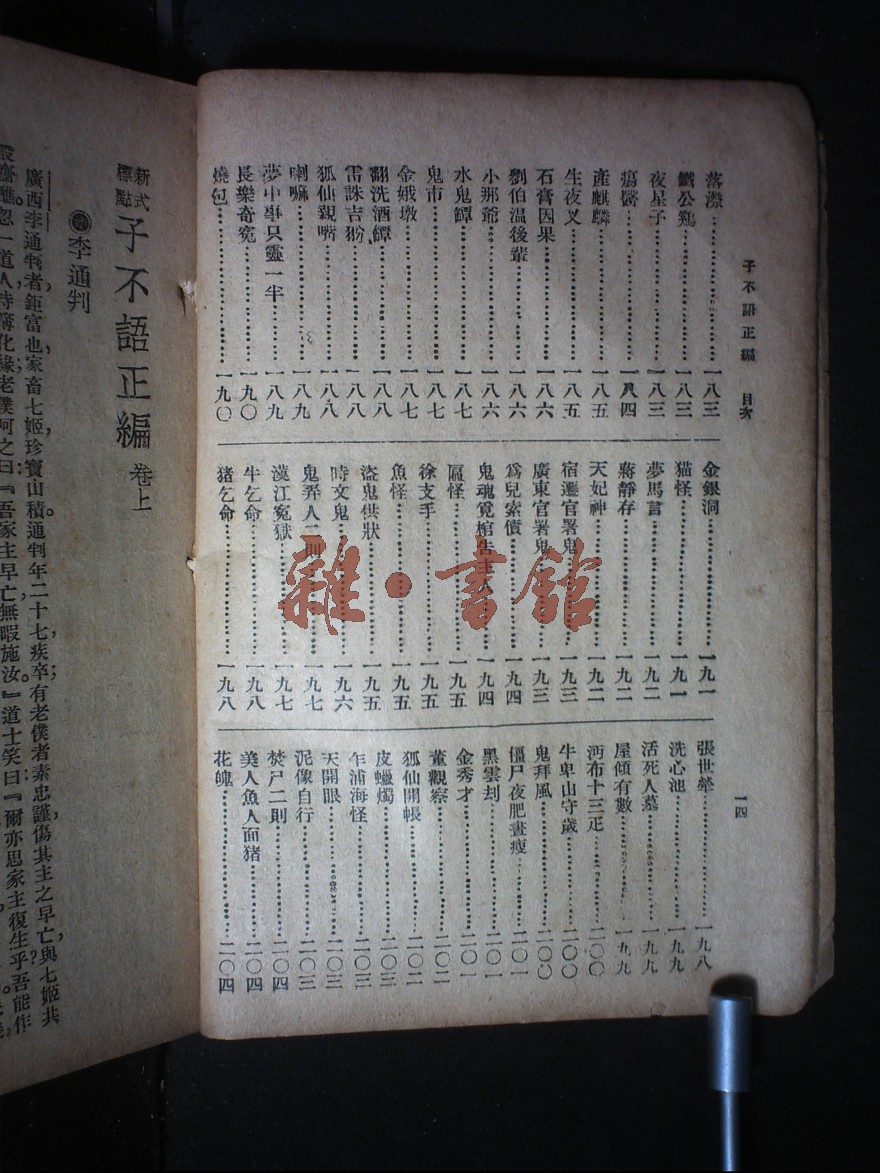 子不語正編　目次
一四
落漈……一八三
鐵公鷄……一八三
夜星子……一八三
瘍醫……一八四
產麒麟……一八五
生夜叉……一八五
石膏因果……一八六
劉伯温後輩……一八六
小那爺……一八六
水鬼罈……一八七
鬼市……一八七
金娥墩……一八七
翻洗酒罈……一八八
雷誅吉翂……一八八
狐仙親嘴……一八八
喇嘛……一八九
夢中事只靈一半……一八九
長樂奇寃……一九〇
燒包……一九〇
金銀洞……一九一
猫怪……一九一
夢馬言……一九二
蔣靜存……一九二
天妃神……一九二
宿遷官署鬼……一九三
廣東官署鬼……一九三
爲兒索債……一九四
鬼魂覓棺告主人……一九四
匾怪……一九五
徐支手……一九五
魚怪……一九五
盜鬼供狀……一九五
時文鬼……一九六
鬼弄人二則……一九七
漢江寃獄……一九七
牛乞命……一九八
猪乞命……一九八
張世犖……一九八
洗心池……一九九
活死人墓……一九九
屋傾有數……一九九
沔布十三疋……二〇〇
牛卑山守歲……二〇〇
鬼拜風……二〇〇
僵尸夜肥晝瘦……二〇一
黑雲刦……二〇一
金秀才……二〇一
董觀察……二〇二
狐仙開帳……二〇二
皮蠟燭……二〇二
乍浦海怪……二〇三
天開眼……二〇三
泥像自行……二〇三
焚尸二則……二〇四
美人魚人面猪……二〇四
花魄……二〇四
新式標點　子不語正編　卷上
李通判
廣西李通判者，鉅富也，家畜七姬，珍寶山積。通判年二十七疾卒。有老僕者，素忠謹，傷其主之早亡，與七姬共
齋醮。忽一道人持簿化緣，老僕呵之曰：『吾家主早亡，無暇施汝。』道士笑曰：『爾亦思家主復生乎？吾能作
雜·書館